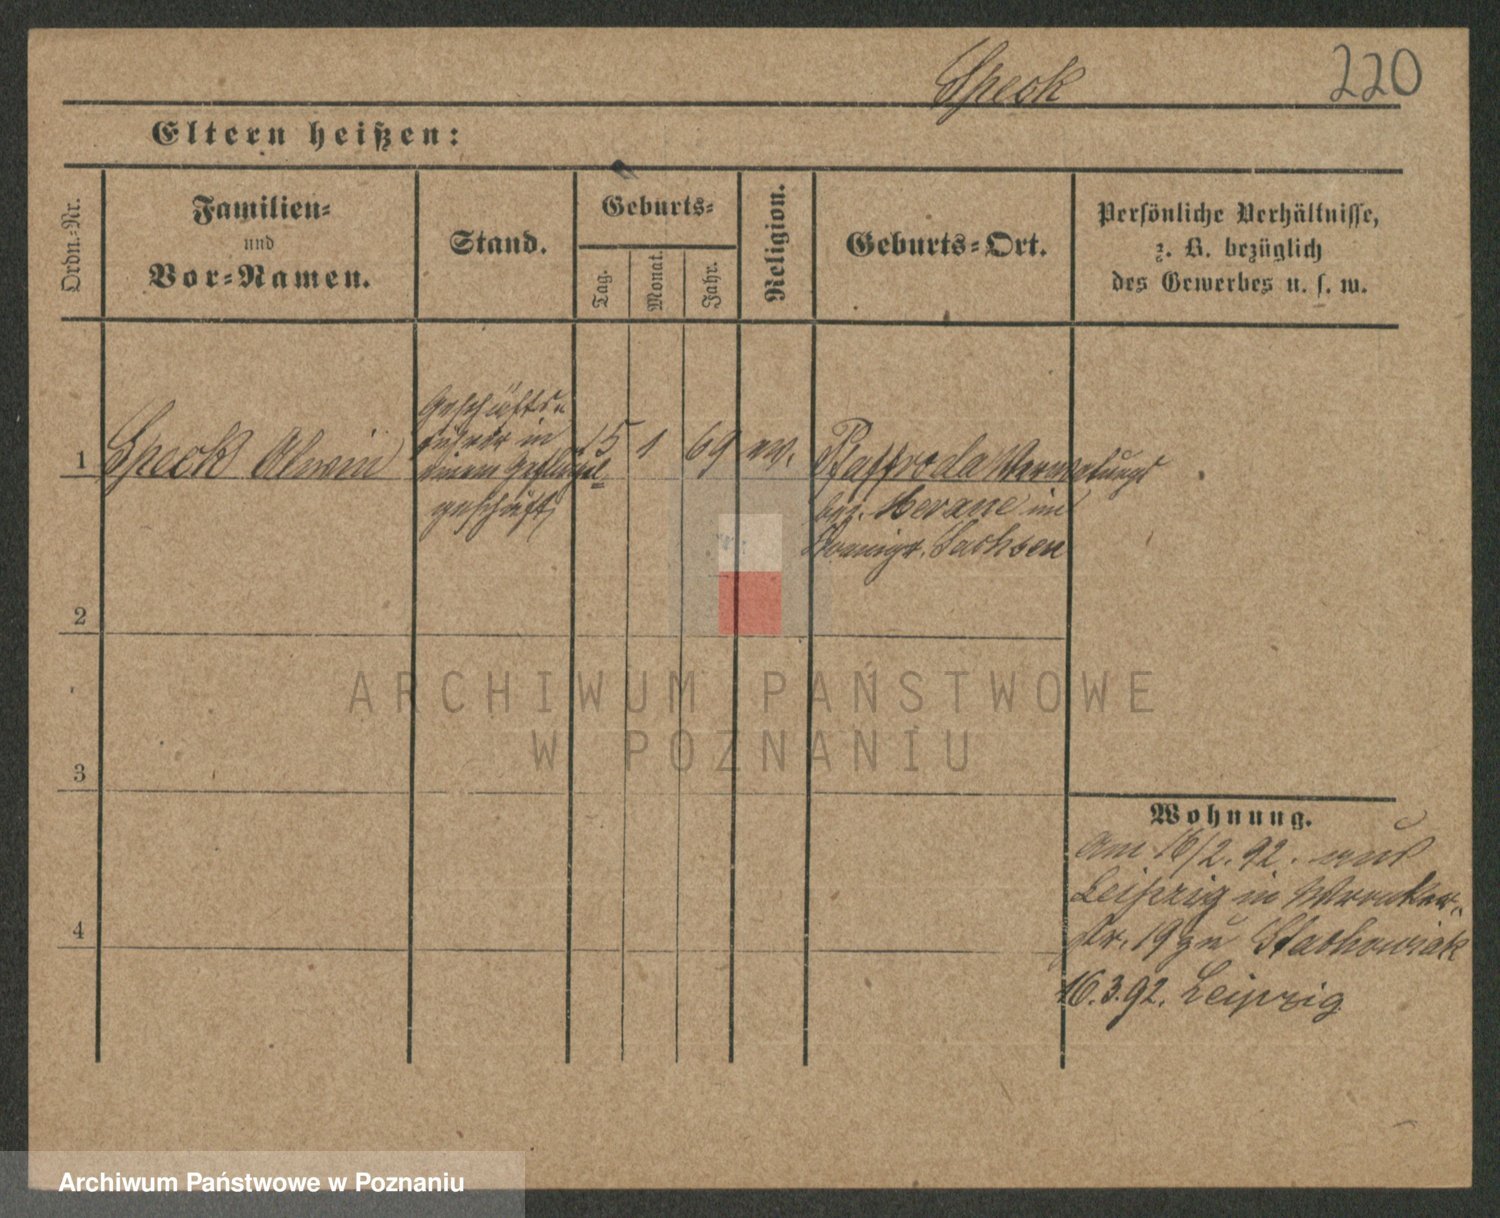 Speck 220
Eltern heißen:
Ordn.-Nr.
Familien-
und
Vor-Namen.
Stand.
Geburts-
Tag.
Monat.
Jahr.
Religion.
Geburts-Ort.
Persönliche Verhältnisse,
z. B. bezüglich
des Gewerbes u. s. w.
1 Speck Alwin
Geschäfts-
führer in
einem Geflügel-
geschäft
15 1 69 ev.
Pfaffroda Verwaltungs
bez. Merane im
Königr. Sachsen
2
3
4
Wohnung.
Am 16/2. 92. aus
Leipzig in Wronker-
str. 19 zu Stachowiak
16.3.92. Leipzig
ARCHIWUM PAŃSTWOWE
W POZNANIU
Archiwum Państwowe w Poznaniu